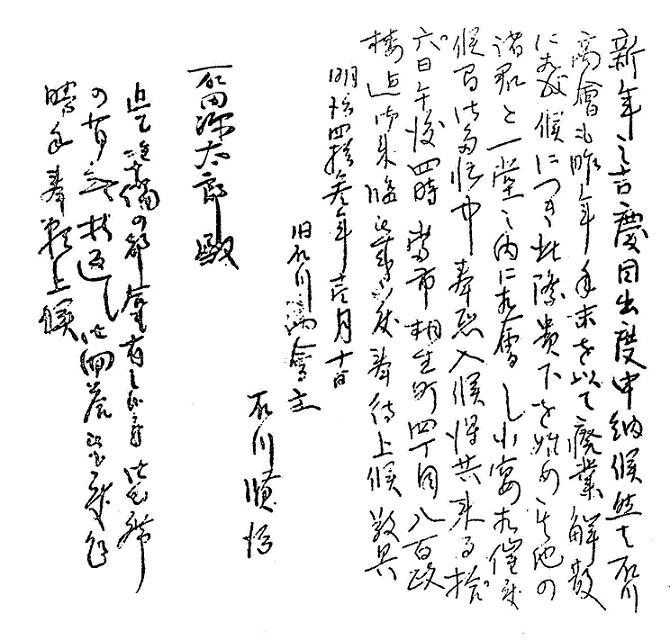 新年之吉慶目出度申納候然ば石川
商會も昨年年末を以て廃業解散
に相成候につき此際貴下を始め其他の
諸君と一堂之内に相會し小宴相催度
候間御多忙中奉恐入候得共来る拾
六日午後四時當市相生町四丁目八百政
楼迄御来臨被成下度奉待上候敬具
明治四拾参年壱月十日
旧石川商會主
石川
石田弥太郎殿
追て準備の都合有之候に付御出席
の有無折返し御回答
奉願上候